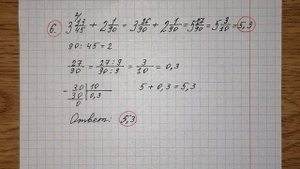 6. 3 13/45 + 2 1/90 = 3 26/90 + 2 1/90 = 5 27/90 = 5 3/10 = 5,3
90 : 45 = 2
27/90 = 27:9/90:9 = 3/10 = 0,3
- 30 | 10
30 | 0,3
0
5 + 0,3 = 5,3
Ответ: 5,3